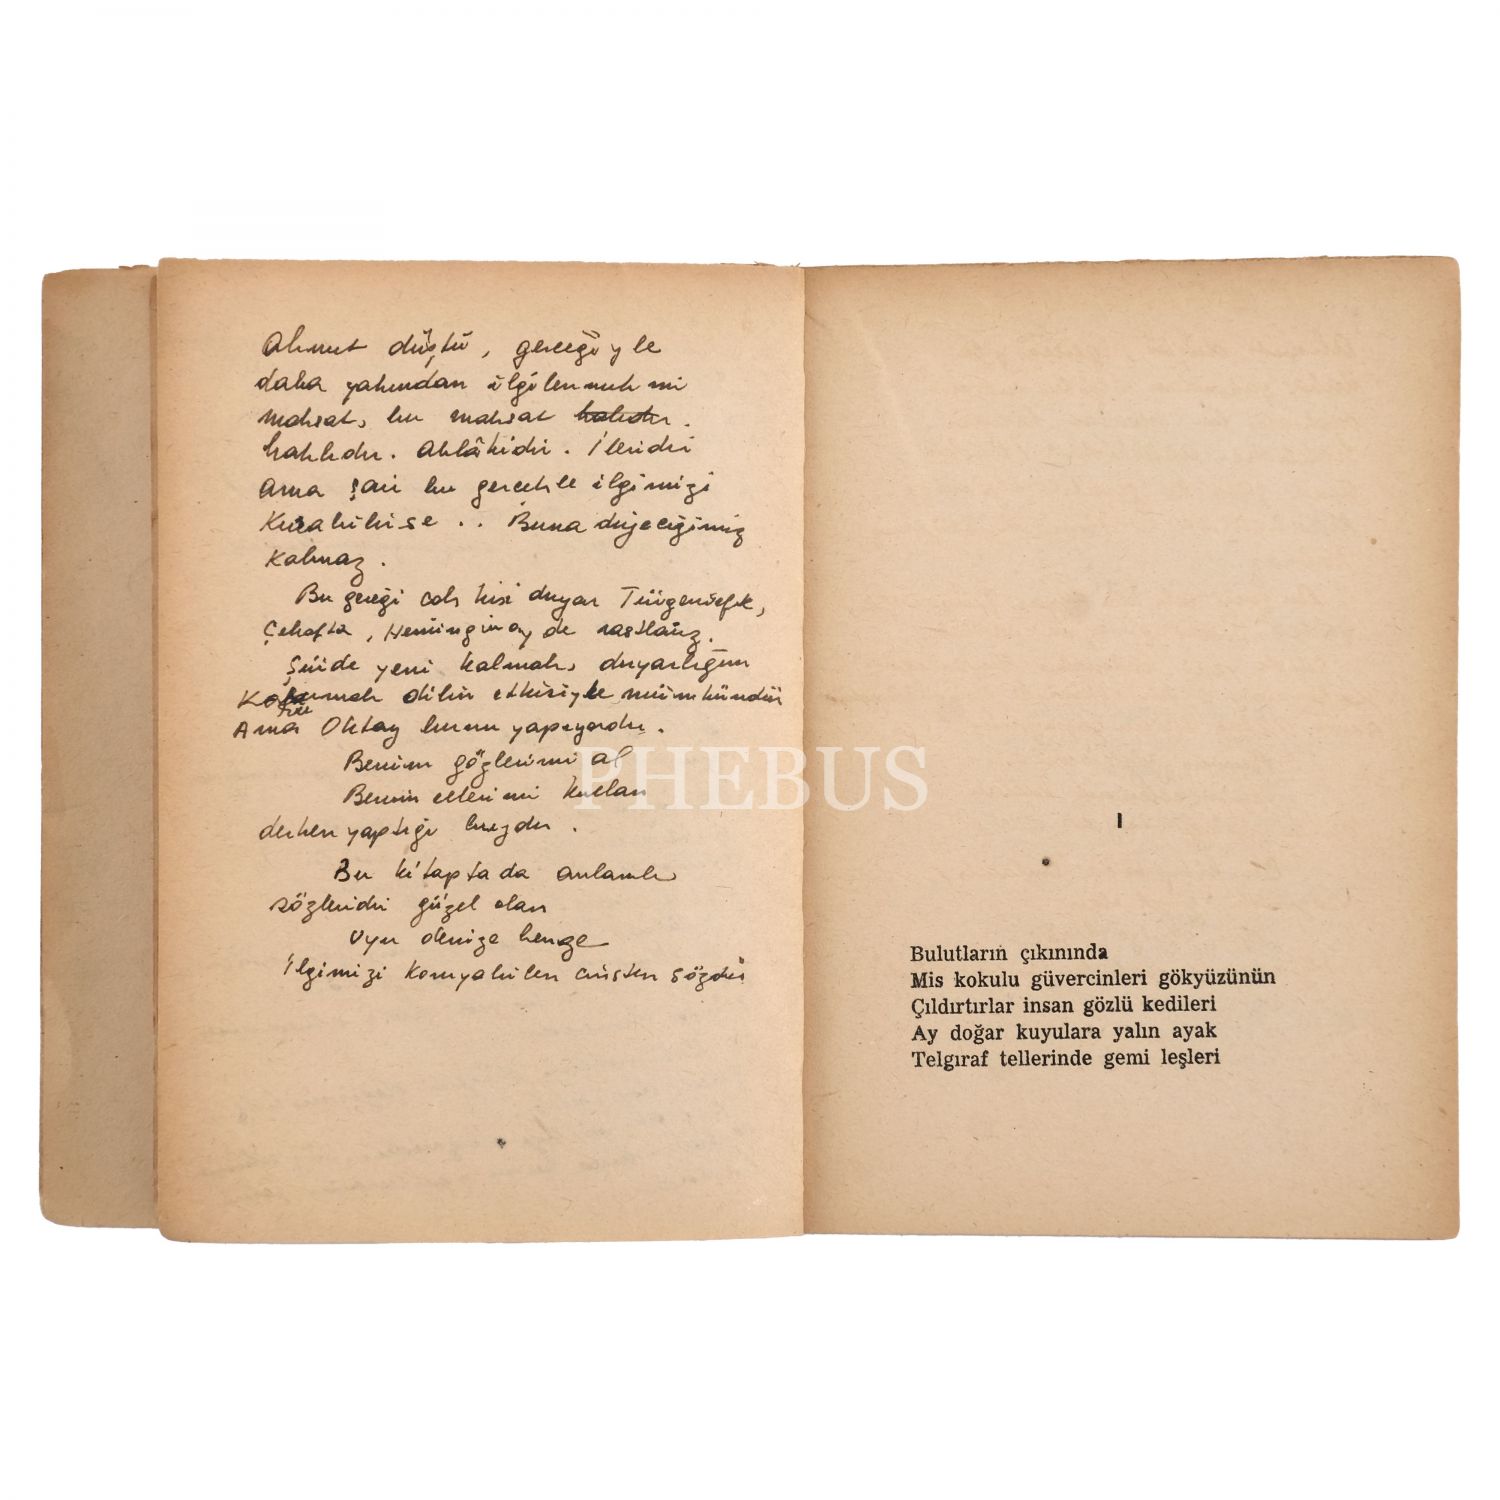 Ahmet düştü, gerçeğiyle
daha yakından ilgilenmek mi
maksat, bu maksat haklıdır.
haklıdır. Ahlâkidir. İleridir
Ama şair bu gerçekle ilgimizi
Kurabilirse .. Buna diyeceğimiz
Kalmaz.
Bu gerçeği çok kişi duyar
Çehofta, Hemingway de rastlarız.
Şiirde yeni kalmak, duyarlığını
dilin etkisiyle mümkündür
Ama Oktay bunu yapıyordu.
Benim gözlerimi al
Benim ellerimi kullan
derken yaptığı buydu.
Bu kitapta da anlamlı
sözleridir güzel olan
Uyu denize benze
İlgimizi koruyabilen cinsten sözdür
PHEBUS
I
Bulutların çıkınında
Mis kokulu güvercinleri gökyüzünün
Çıldırtırlar insan gözlü kedileri
Ay doğar kuyulara yalın ayak
Telgıraf tellerinde gemi leşleri